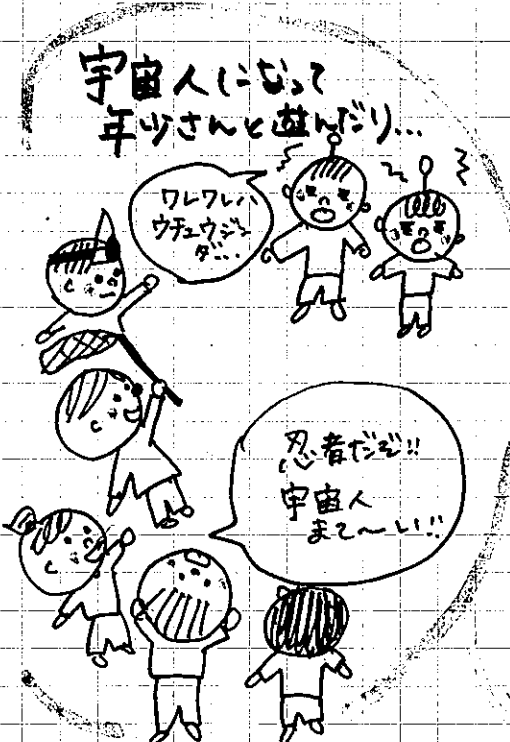 宇宙人になって
年少さんと遊んだり...
ワレワレハ
ウチュウジン
ダ...
忍者だぞ!!
宇宙人
まて～い!!